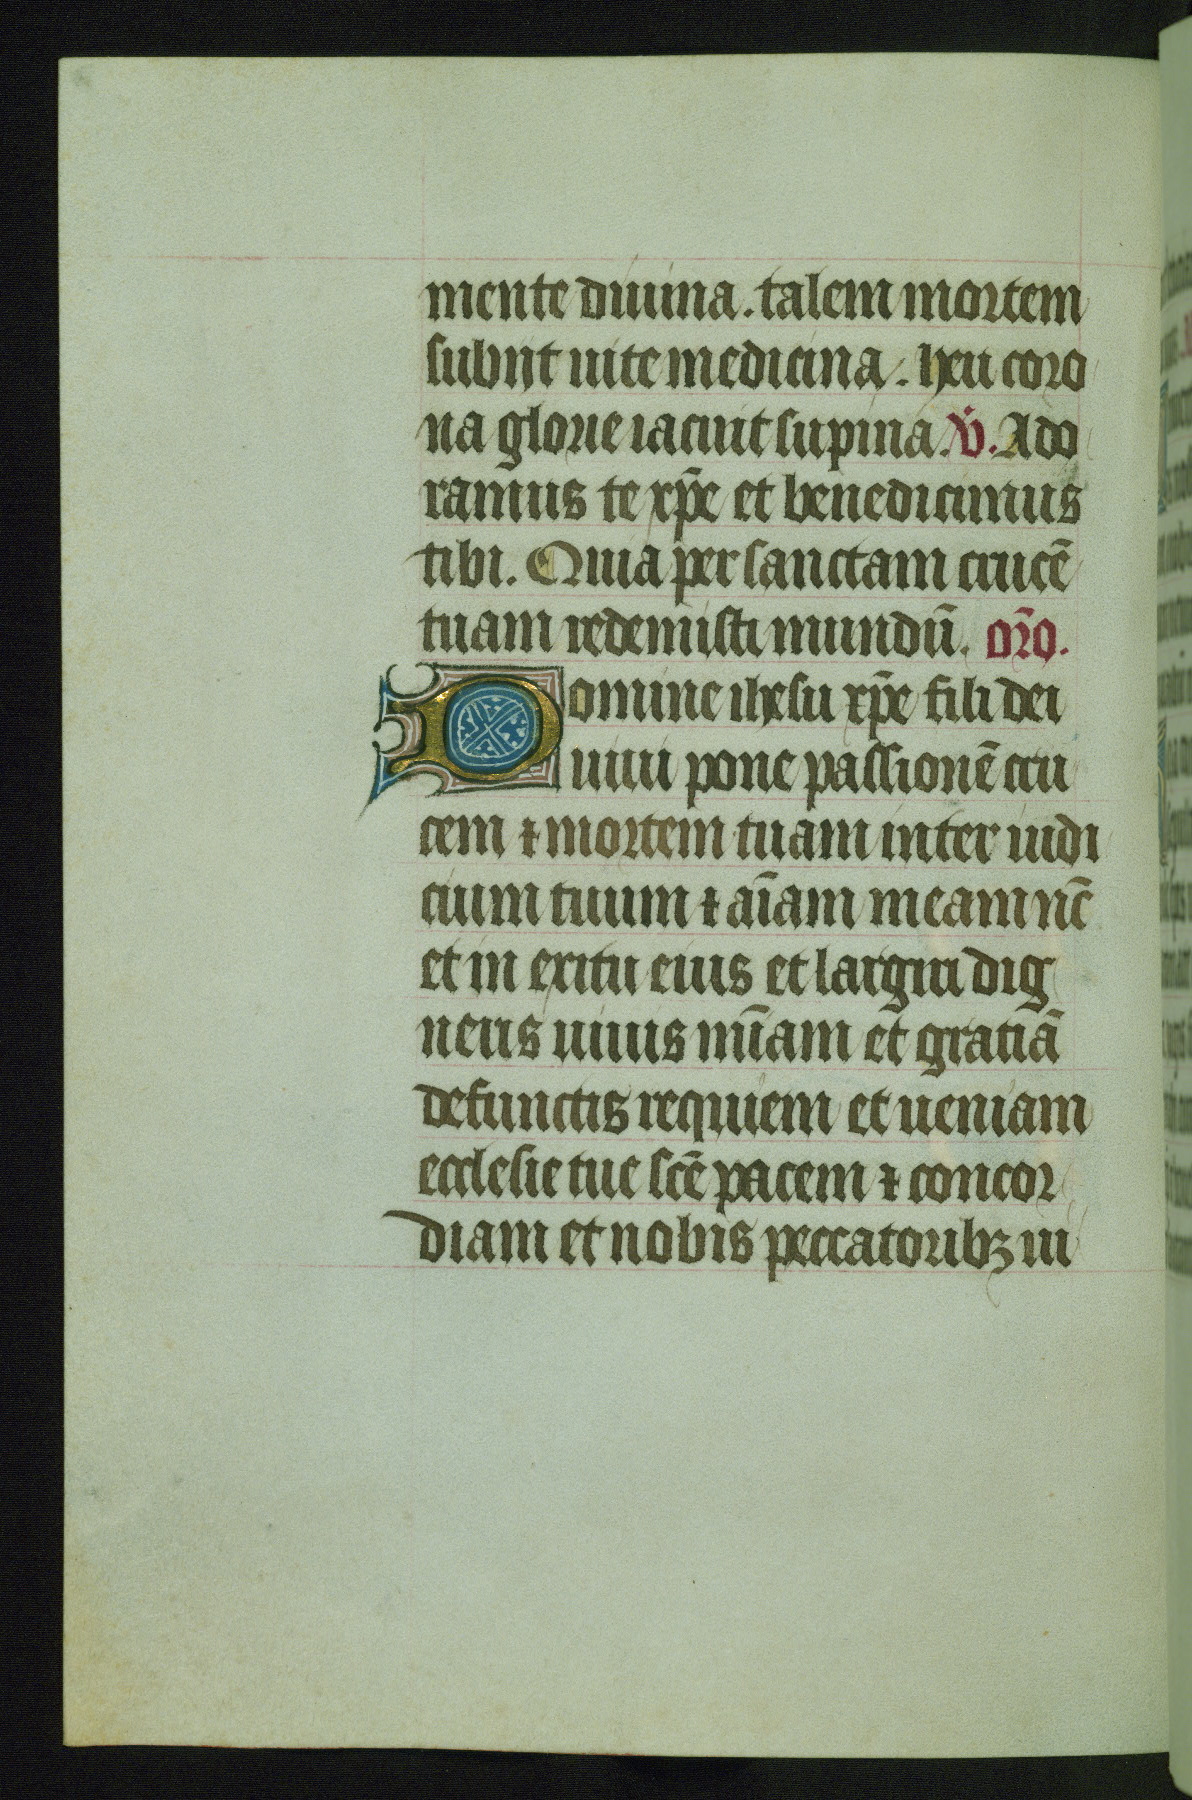 mente diuina. talem mortem
subiit uite medicina. heu coro
na glorie iacuit supina. V̇. Ado
ramus te xp̄e et benedicimus
tibi. Quia per sanctam crucē
tuam redemisti mundū. or̄o.
Domine ihesu xp̄e fili dei
uiui pone passionē cru
cem ⁊ mortem tuam inter iudi
cium tuum ⁊ aīam meam nc̄
et in exitu eius et largiri dig
neris uiuis mīam et gratiā
defunctis requiem et ueniam
ecclesie tue scē pacem ⁊ concor
diam et nobis peccatoribꝫ ui